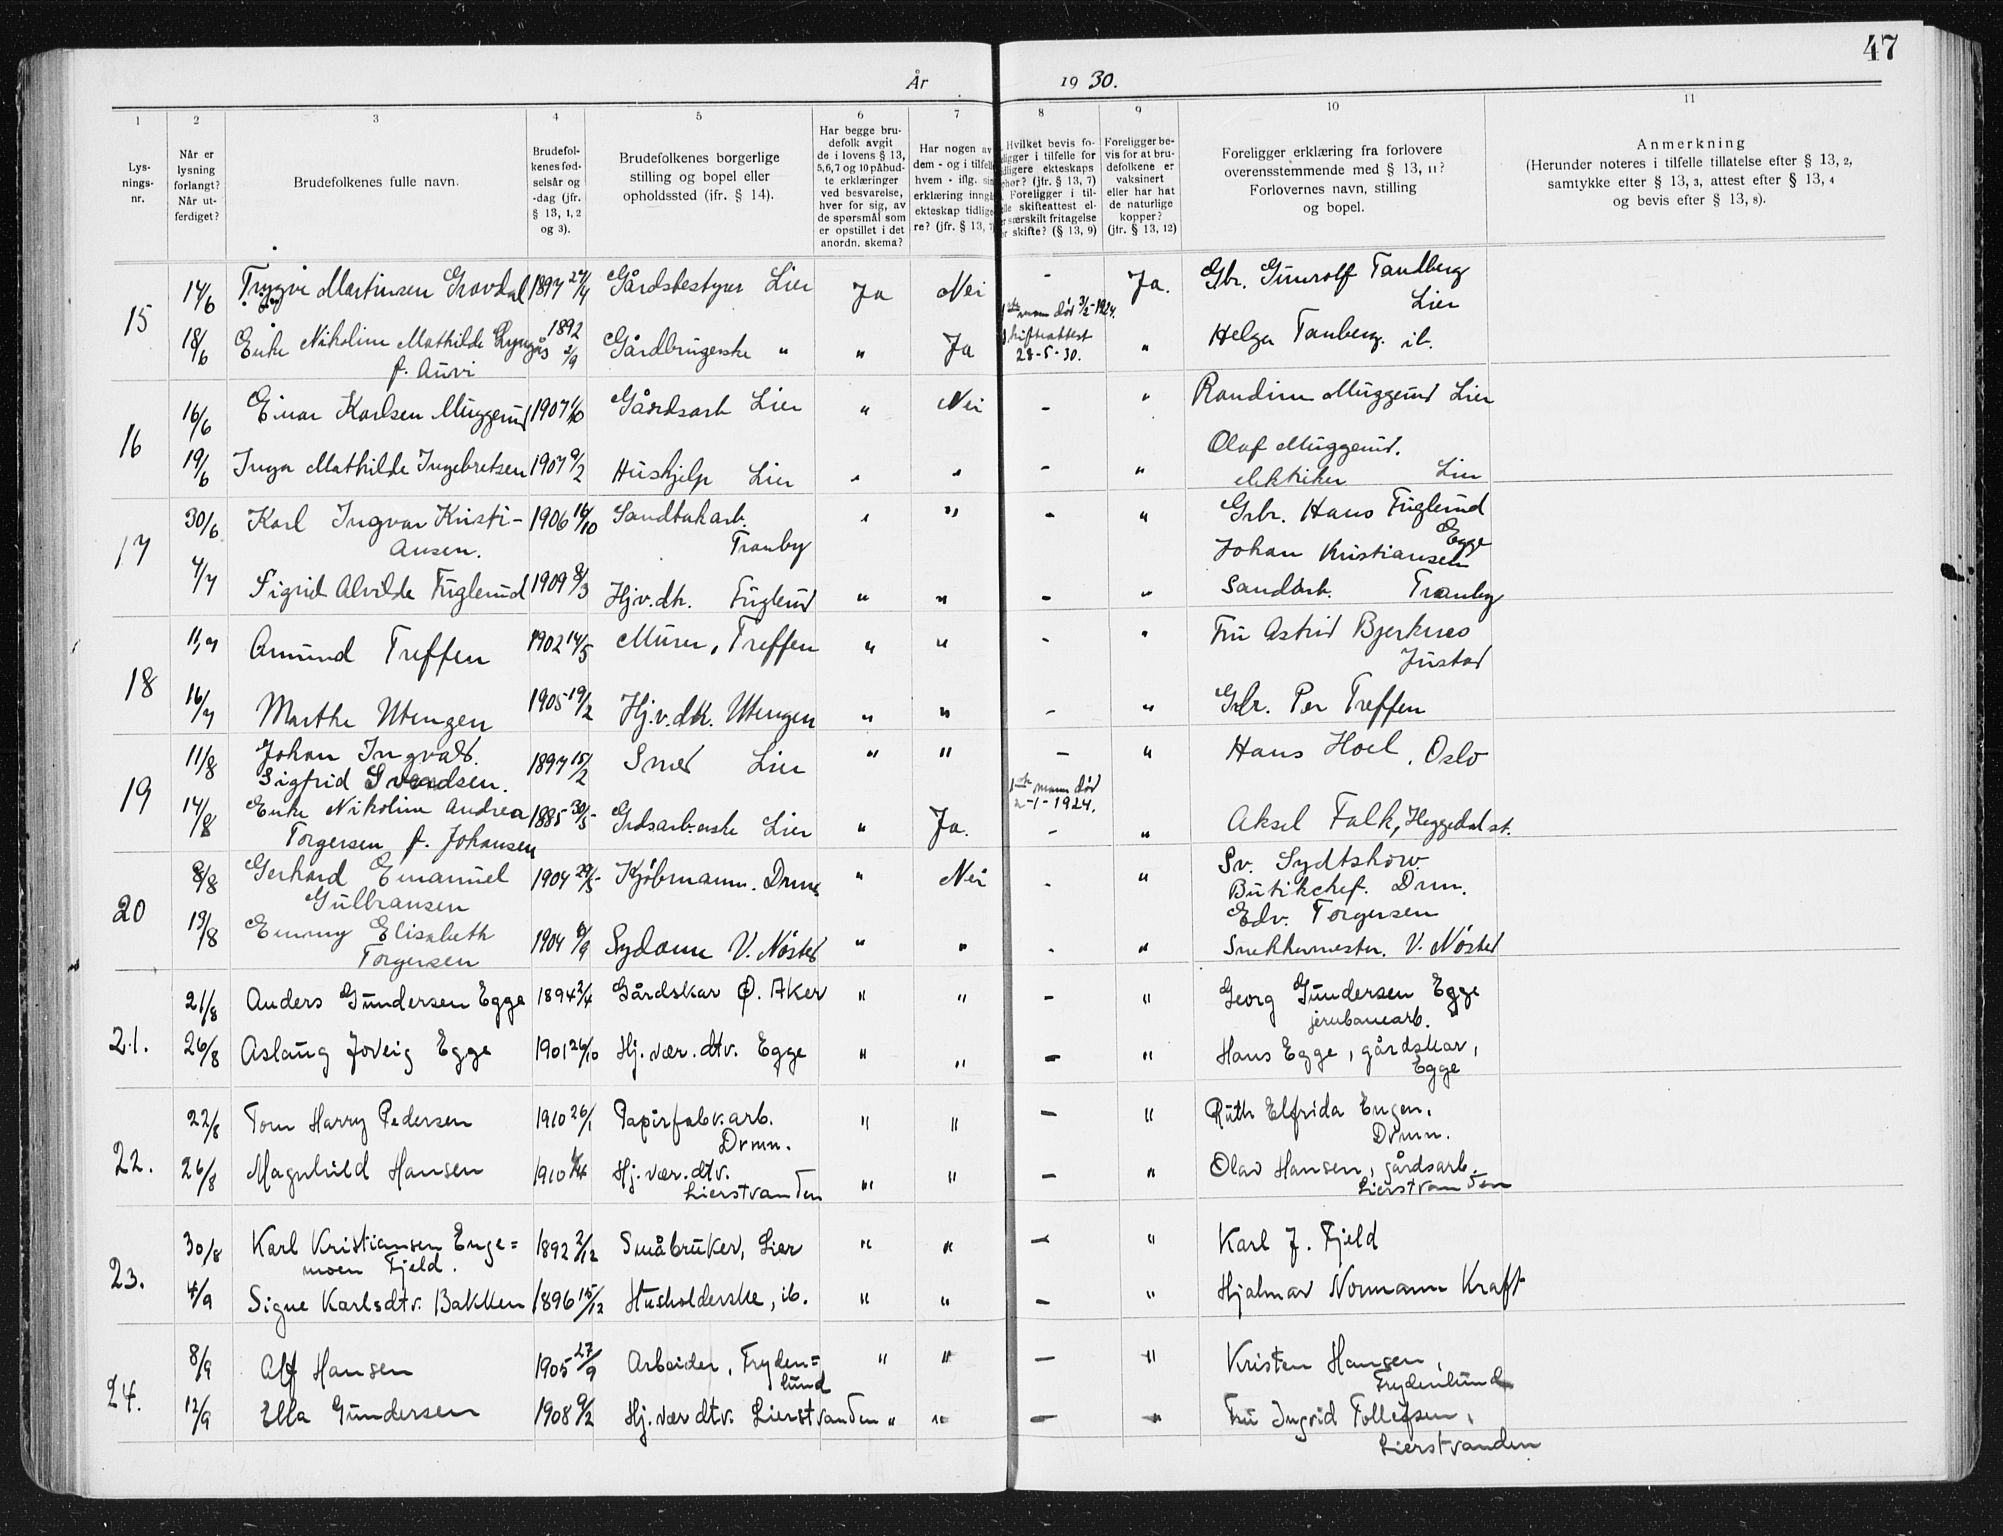 47
År 1930.
1 2 3 4 5 6 7 8 9 10 11
Lysningsnr.
Når er lysning forlangt? Når utferdiget?
Brudefolkenes fulle navn.
Brudefolkenes fødselsår og -dag (jfr. § 13, 1, 2 og 3).
Brudefolkenes borgerlige stilling og bopel eller opholdssted (jfr. § 14).
Har begge brudefolk avgit de i lovens § 13, 5,6,7 og 10 påbudte erklæringer ved besvarelse, hver for sig, av de spørsmål som er opstillet i det anordn. skema?
Har nogen av dem - og i tilfelle hvem - iflg. sin erklæring inngå ekteskap tidligere? (jfr. § 13, 7
Hvilket bevis foligger i tilfelle for idligere ekteskaps ophør? (jfr. § 13, 7) Foreligger i tilfelle skifteattest el- særskilt fritagelse skifte? (§ 13, 9)
Foreligger bevis for at brudefolkene er vaksinert eller har hat de naturlige kopper? (jfr. § 13, 12)
Foreligger erklæring fra forlovere overensstemmende med § 13, 11? Forlovernes navn, stilling og bopel.
Anmerkning
(Herunder noteres i tilfelle tillatelse efter § 13, 2, samtykke efter § 13, 3, attest efter § 13, 4 og bevis efter § 13, 8).
15 14/6 Trygve Martinsen Gravdal 1897 27/4 Gårdsbestyrer Lier Ja Nei - Ja. Gbr. Gunrolf Tandberg
Lier
18/6 Enke Nikoline Mathilde Lyngås 1892 2/9 Gårdbrugerske " " Ja 1ste mann død 3/2-1924. Skifteattest 28-5-30. " Helga Tanberg. ib.
f. Auvi
16 16/6 Einar Karlsen Muggerud 1907 1/10 Gårdsarb Lier " Nei - " Randine Muggerud Lier
19/6 Inga Mathilde Ingebretsen 1907 9/2 Hushjelp Lier " " - " Olaf Muggerud.
elektriker Lier
17 30/6 Karl Ingvar Kristi- 1906 16/10 Sandtakarb. " " - " Grbr. Hans Fuglerud
ansen. Tranby Egge
4/7 Sigrid Alvilde Fuglerud 1909 8/3 Hjv.dtr. Fuglerud " " - " Johan Kristiansen
Sandarb. Tranby
18 11/7 Amund Treffen 1902 14/5 Murer, Treffen " " - " Fru Astrid Bjerknes
Justad
16/7 Marthe Utengen 1905 19/2 Hj.v.dtr. Utengen " " - " Gbr. Per Treffen
19 11/8 Johan Ingvald. 1897 15/2 Smed Lier " " - " Hans Hoel, Oslo
Sigfrid Svendsen.
14/8 Enke Nikoline Andrea 1885 30/5 Grdsarb.erske Lier " Ja. 1ste mann død 2-1-1924. - " Aksel Falk, Heggedal st.
Torgersen f. Johansen
20 8/8 Gerhard Emanuel 1904 29/5 Kjøbmann. Drm " Nei - " Sv. Sydtskow
Gulbransen Butikchef. Drm.
19/8 Emmy Elisabeth 1904 6/9 Sydame V. Nøsted " " - " Edv. Torgersen
Torgersen Snekkermester. V. Nøsted
21. 21/8 Anders Gundersen Egge 1894 2/4 Gårdskar Ø. Aker " " - " Georg Gundersen Egge
jernbanearb.
26/8 Aslaug Joveig Egge 1901 26/10 Hj. vær. dtv. Egge " " - " Hans Egge, gårdskar,
Egge
22. 22/8 Tom Harry Pedersen 1910 26/1 Papirfabv.arb. " " - " Ruth Elfrida Engen.
Drmn. Drmn.
26/8 Magnhild Hansen 1910 Hj. vær. dtv. " " - " Olav Hansen, gårdsarb.
Lierstranden Lierstranden
23. 30/8 Karl Kristiansen Enge= 1892 2/12 Småbruker, Lier " " - " Karl J. Fjeld
moen Fjeld.
4/9 Signe Karlsdtr. Bakken 1896 15/12 Husholderske, ib. " " - " Hjalmar Normann Kraft
24. 8/9 Alf Hansen 1905 27/9 Arbeider, Fryden= " " - " Kristen Hansen,
lund Frydenlund
12/9 Ella Gundersen 1908 9/2 Hj. vær dtv. Lierstranden " " - " Fru Ingrid Tollefsen,
Lierstranden